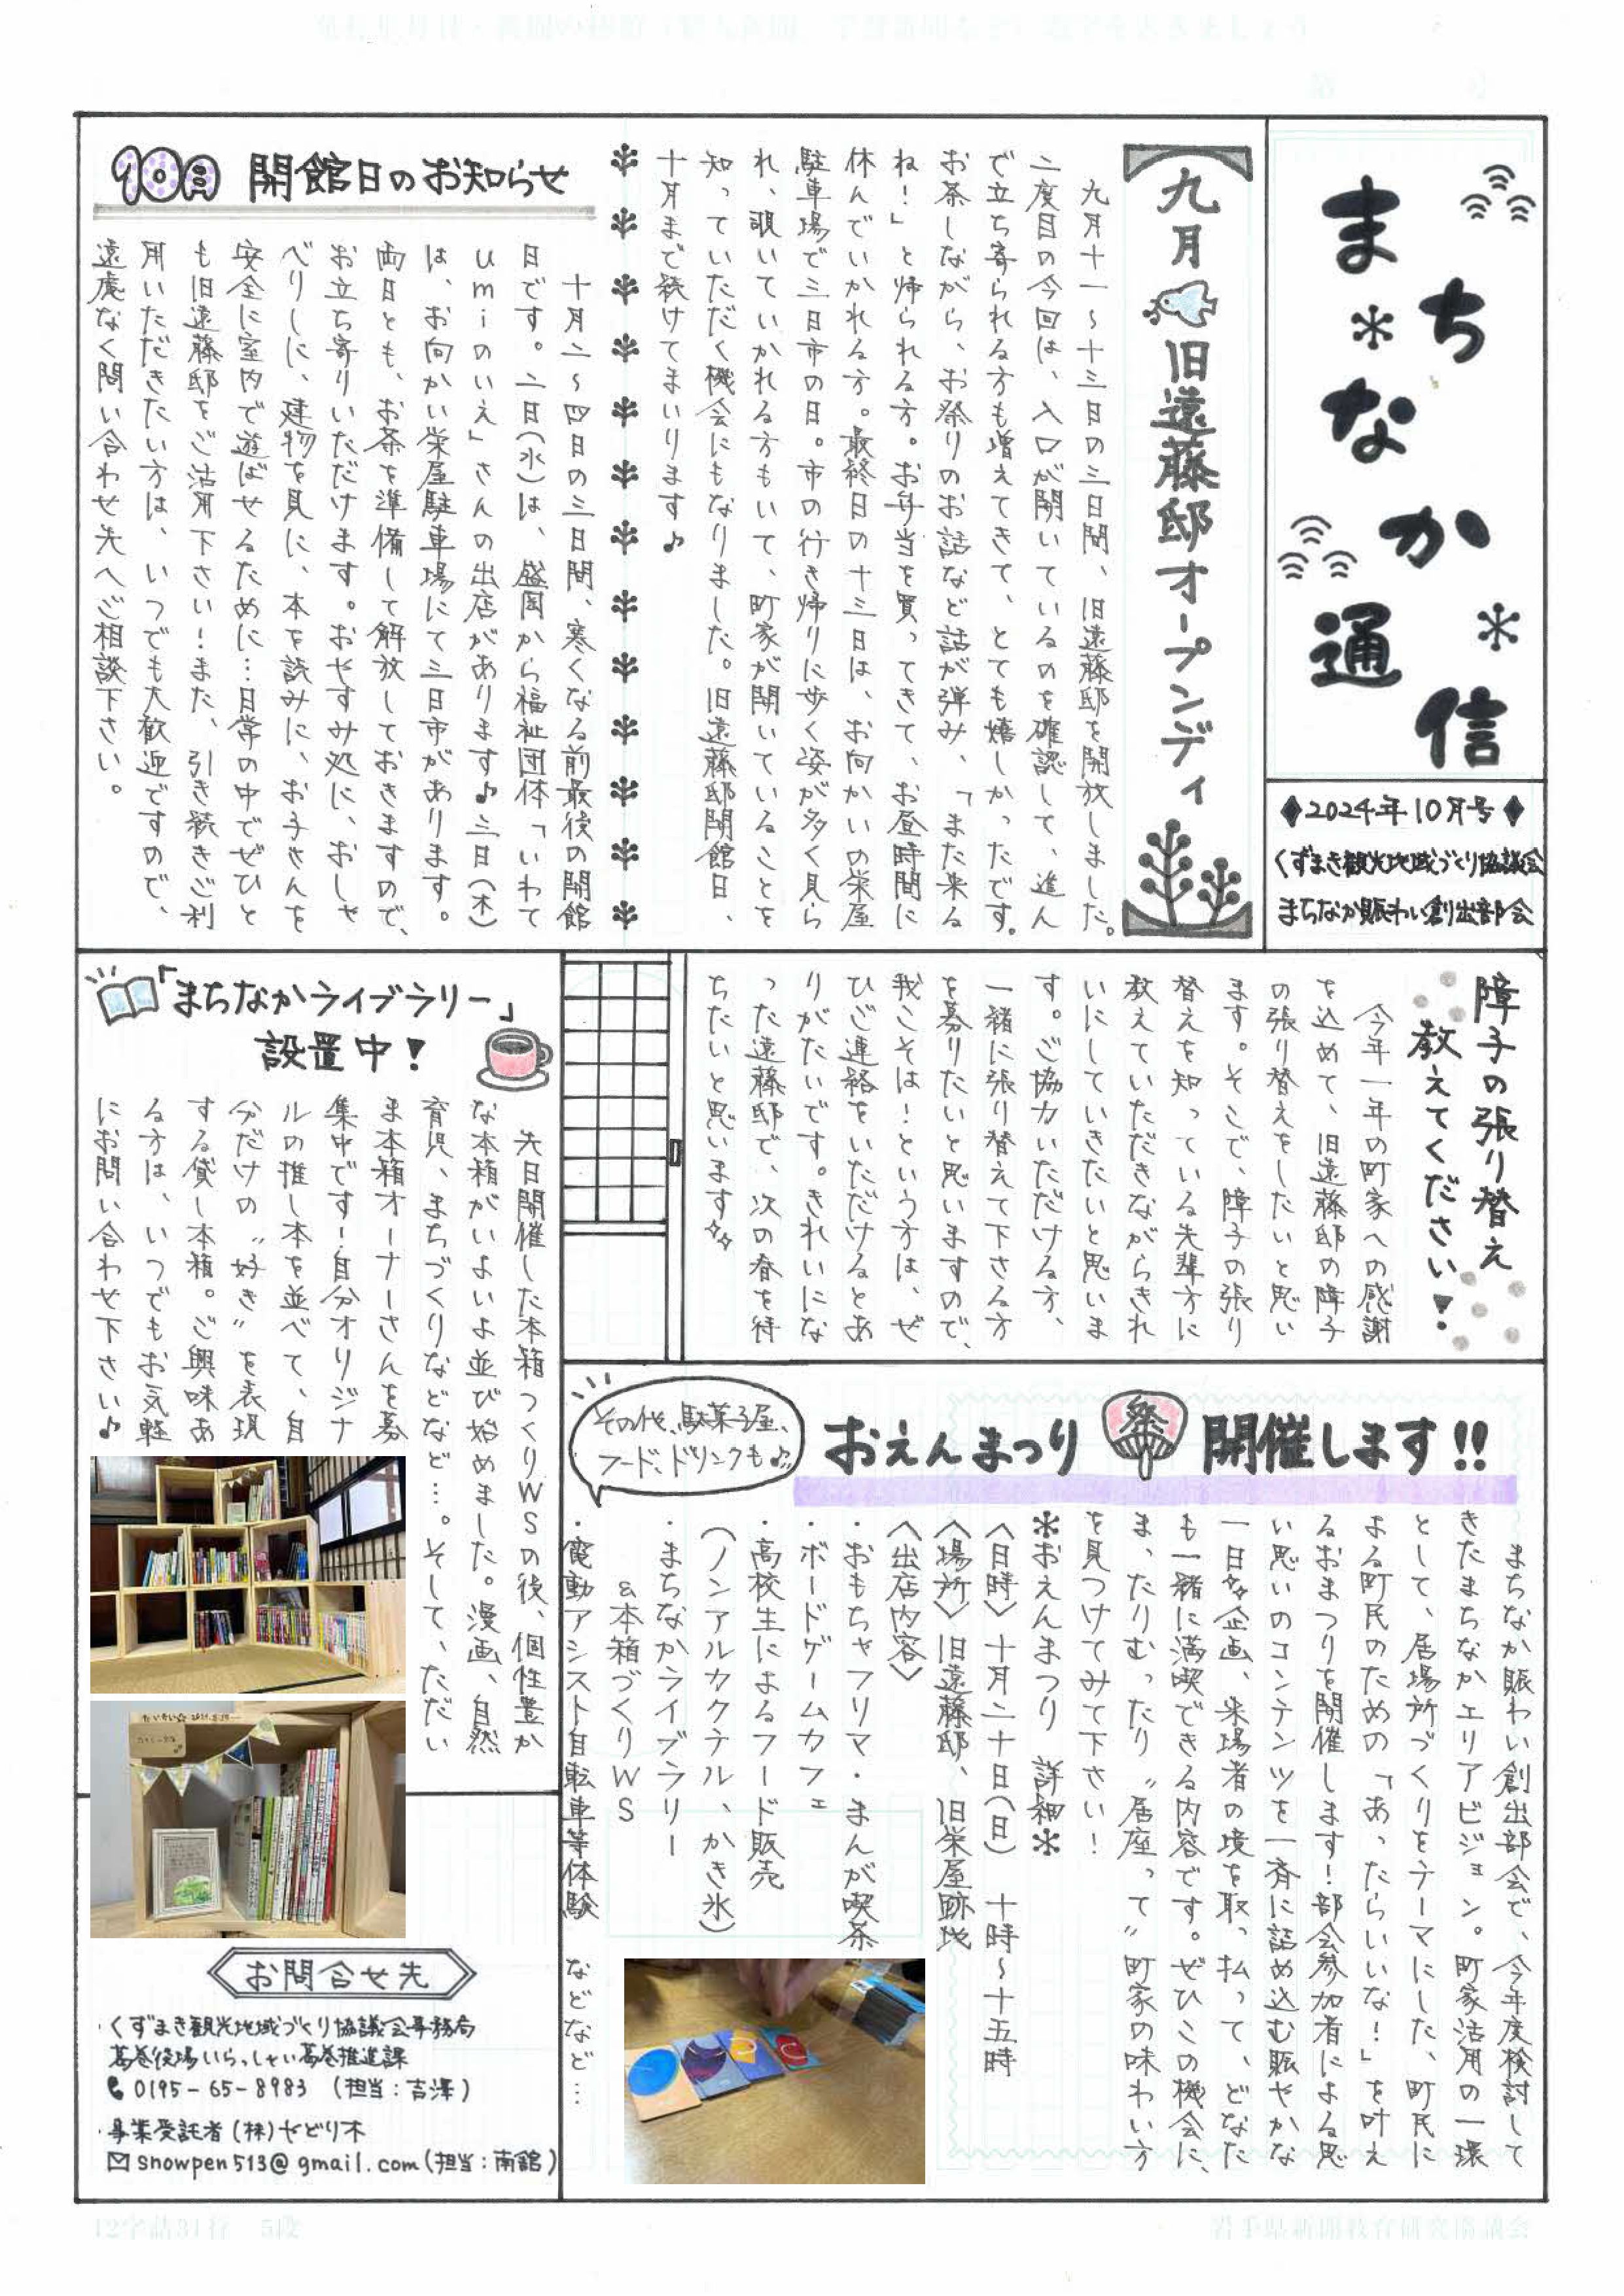 まちなか通信
◆2024年10月号◆
くずまき観光地域づくり協議会
まちなか賑わい創出部会
九月 旧遠藤邸オープンディ
九月十一～十三日の三日間、旧遠藤邸を開放しました。
二度目の今回は、入口が開いているのを確認して、進ん
で立ち寄られる方も増えてきて、とても嬉しかったです。
お茶しながら、お祭りのお話など話が弾み、「また来る
ね！」と帰られる方。お弁当を買ってきて、お昼時間に
休んでいかれる方。最終日の十三日は、お向かいの栄屋
駐車場で三日市の日。市の行き帰りに歩く姿が多く見ら
れ、覗いていかれる方もいて、町家が開いていることを
知っていただく機会にもなりました。旧遠藤邸開館日、
十月まで続けてまいります♪
10月 開館日のお知らせ
十月二～四日の三日間、寒くなる前最後の開館
日です。二日(水)は、盛岡から福祉団体「いわて
Umiのいえ」さんの出店があります♪三日(木)
は、お向かい栄屋駐車場にて三日市があります。
両日とも、お茶を準備して解放しておきますので、
お立ち寄りいただけます。おやすみ処に、おしゃ
べりしに、建物を見に、本を読みに、お子さんを
安全に室内で遊ばせるために…日常の中でぜひと
も旧遠藤邸をご活用下さい！また、引き続きご利
用いただきたい方は、いつでも大歓迎ですので、
遠慮なく問い合わせ先へご相談下さい。
障子の張り替え
教えてください！
今年一年の町家への感謝
を込めて、旧遠藤邸の障子
の張り替えをしたいと思い
ます。そこで、障子の張り
替えを知っている先輩方に
教えていただきながらきれ
いにしていきたいと思いま
す。ご協力いただける方、
一緒に張り替えて下さる方
を募りたいと思いますので、
我こそは！という方は、ぜ
ひご連絡をいただけるとあ
りがたいです。きれいにな
った遠藤邸で、次の春を待
ちたいと思います✨
「まちなかライブラリー」
設置中！
先日開催した本箱つくりWSの後、個性豊か
な本箱がいよいよ並び始めました。漫画、自然
育児、まちづくりなどなど…。そして、ただい
ま本箱オーナーさんを募
集中です！自分オリジナ
ルの推し本を並べて、自
分だけの〝好き〟を表現
する貸し本箱。ご興味あ
る方は、いつでもお気軽
にお問い合わせ下さい♪
おえんまつり 祭 開催します!!
その他、駄菓子屋、
フード、ドリンクも♪
まちなか賑わい創出部会で、今年度検討して
きたまちなかエリアビジョン。町家活用の一環
として、居場所づくりをテーマにした、町民に
よる町民のための「あったらいいな！」を叶え
るおまつりを開催します！部会参加者による思
い思いのコンテンツを一斉に詰め込む賑やかな
一日✨企画、来場者の境を取っ払って、どなた
も一緒に満喫できる内容です。ぜひこの機会に、
まったりむったり〝居座って〟町家の味わい方
を見つけてみて下さい！
＊おえんまつり 詳細＊
〈日時〉十月二十日(日) 十時～十五時
〈場所〉旧遠藤邸、旧栄屋跡地
〈出店内容〉
・おもちゃフリマ・まんが喫茶
・ボードゲームカフェ
・高校生によるフード販売
(ノンアルカクテル、かき氷)
・まちなかライブラリー
&本箱づくりWS
・電動アシスト自転車等体験 などなど…
お問合せ先
・くずまき観光地域づくり協議会事務局
葛巻役場いらっしゃい葛巻推進課
0195-65-8983 (担当：吉澤)
・事業受託者(株)やどり木
snowpen513@gmail.com(担当：南舘)
12字詰31行 5段
岩手県新聞教育研究協議会